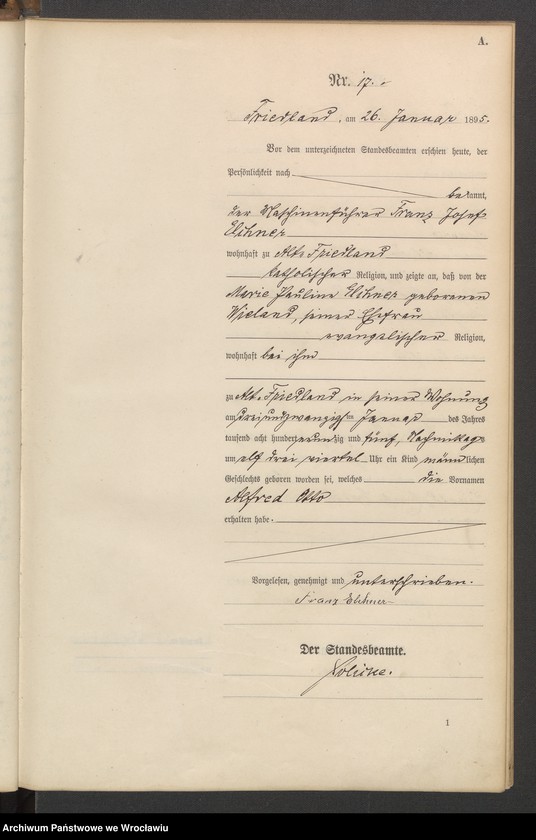 A.
Nr. 17.
Friedland, am 26. Januar 1895.
Vor dem unterzeichneten Standesbeamten erschien heute, der
Persönlichkeit nach
bekannt,
der Maschinenführer Franz Josef
Elsner
wohnhaft zu Alt-Friedland
katholischer Religion, und zeigte an, daß von der
Marie Pauline Elsner geborenen
Wieland, seiner Ehefrau
evangelischer Religion,
wohnhaft bei ihm
zu Alt-Friedland in seiner Wohnung
am dreiundzwanzigsten Januar des Jahres
tausend acht hundert neunzig und fünf, Nachmittags
um elf drei viertel Uhr ein Kind männlichen
Geschlechts geboren worden sei, welches die Vornamen
Alfred Otto
erhalten habe.
Vorgelesen, genehmigt und unterschrieben.
Franz Elsner
Der Standesbeamte.
1
Archiwum Państwowe we Wrocławiu